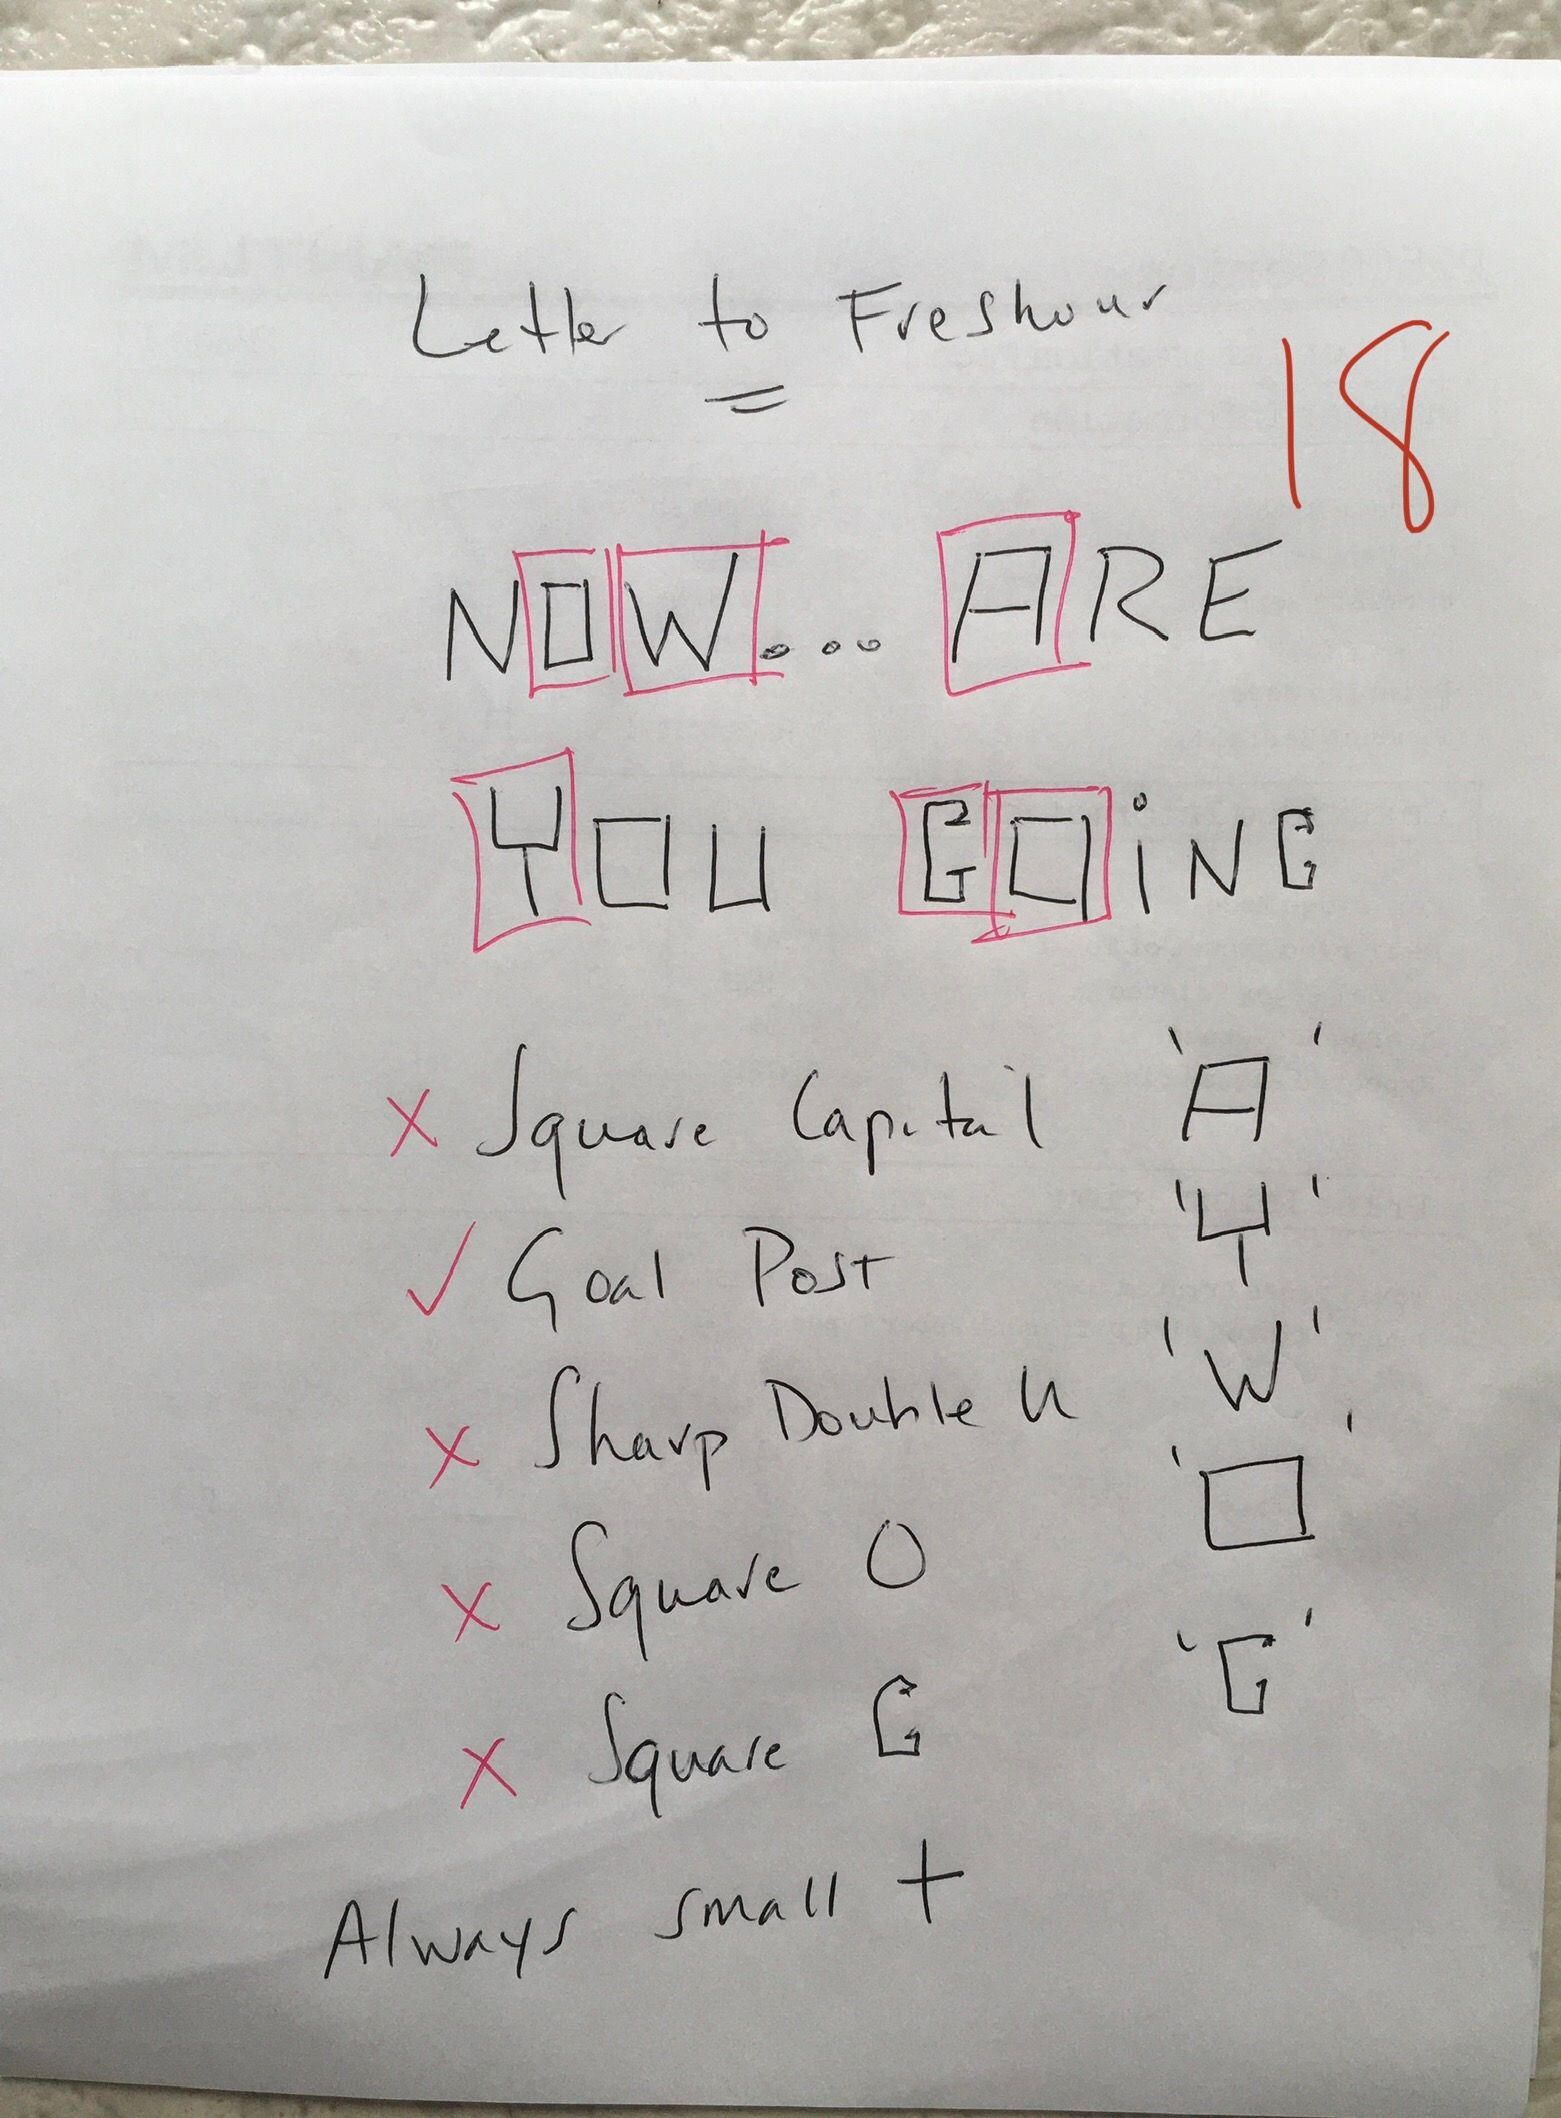 Letter to Freshour
18
NOW... ARE
YOU GOiNG
x Square Capital 'A'
✓ Goal Post 'Y'
x Sharp Double U 'W'
x Square O 'O'
x Square G 'G'
Always small t